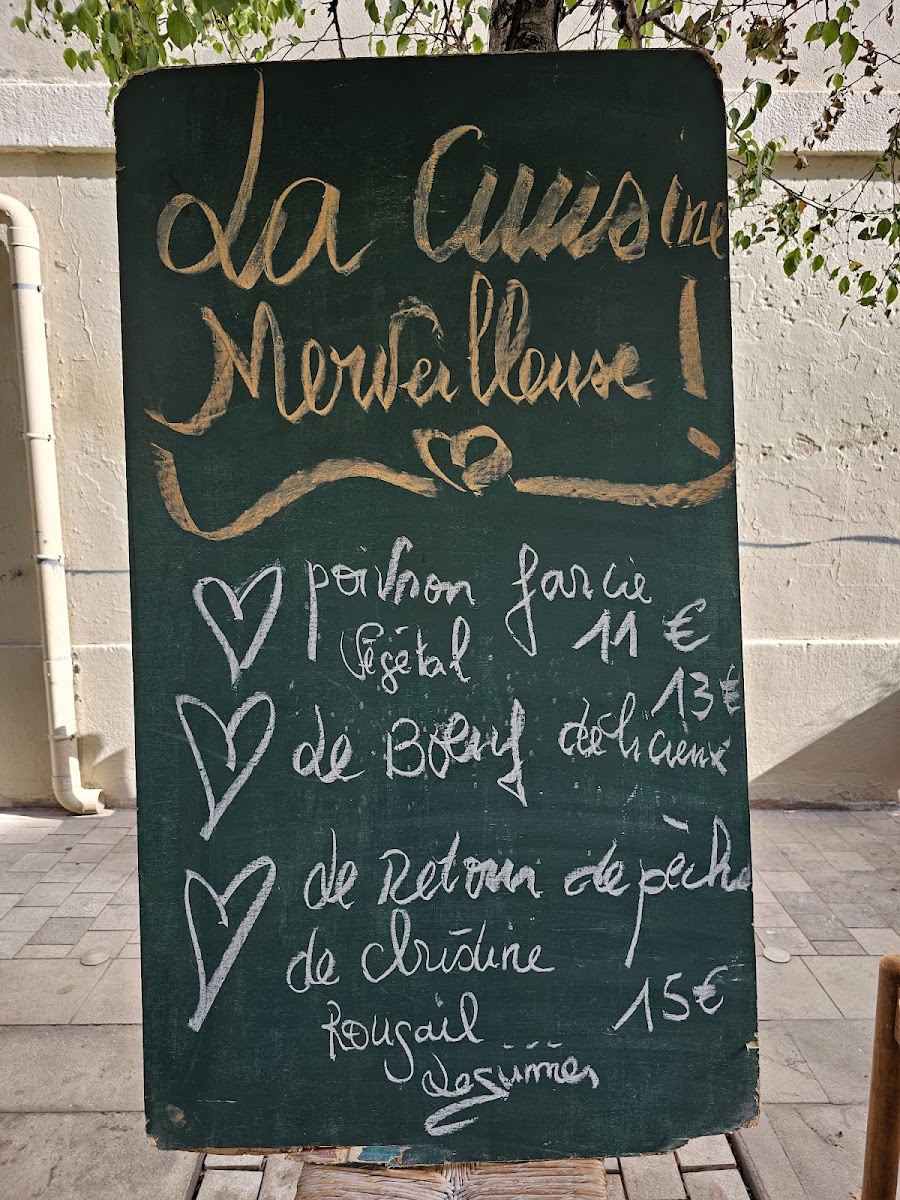 La Cuisine
Merveilleuse !
poivron farcie
Végétal 11 €
13 €
de Bœuf délicieux
de Retour de pèche
de Christine
Rougail 15 €
Legumes